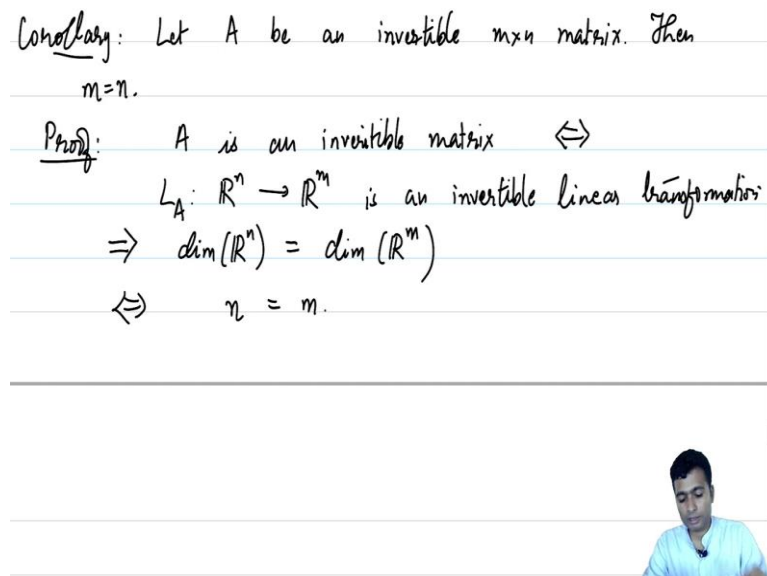 Corollary: Let A be an invertible m×n matrix. Then
m=n.
Proof: A is an invertible matrix ⇔
L_A: ℝⁿ → ℝᵐ is an invertible linear transformation
⇒ dim(ℝⁿ) = dim(ℝᵐ)
⇔ n = m.